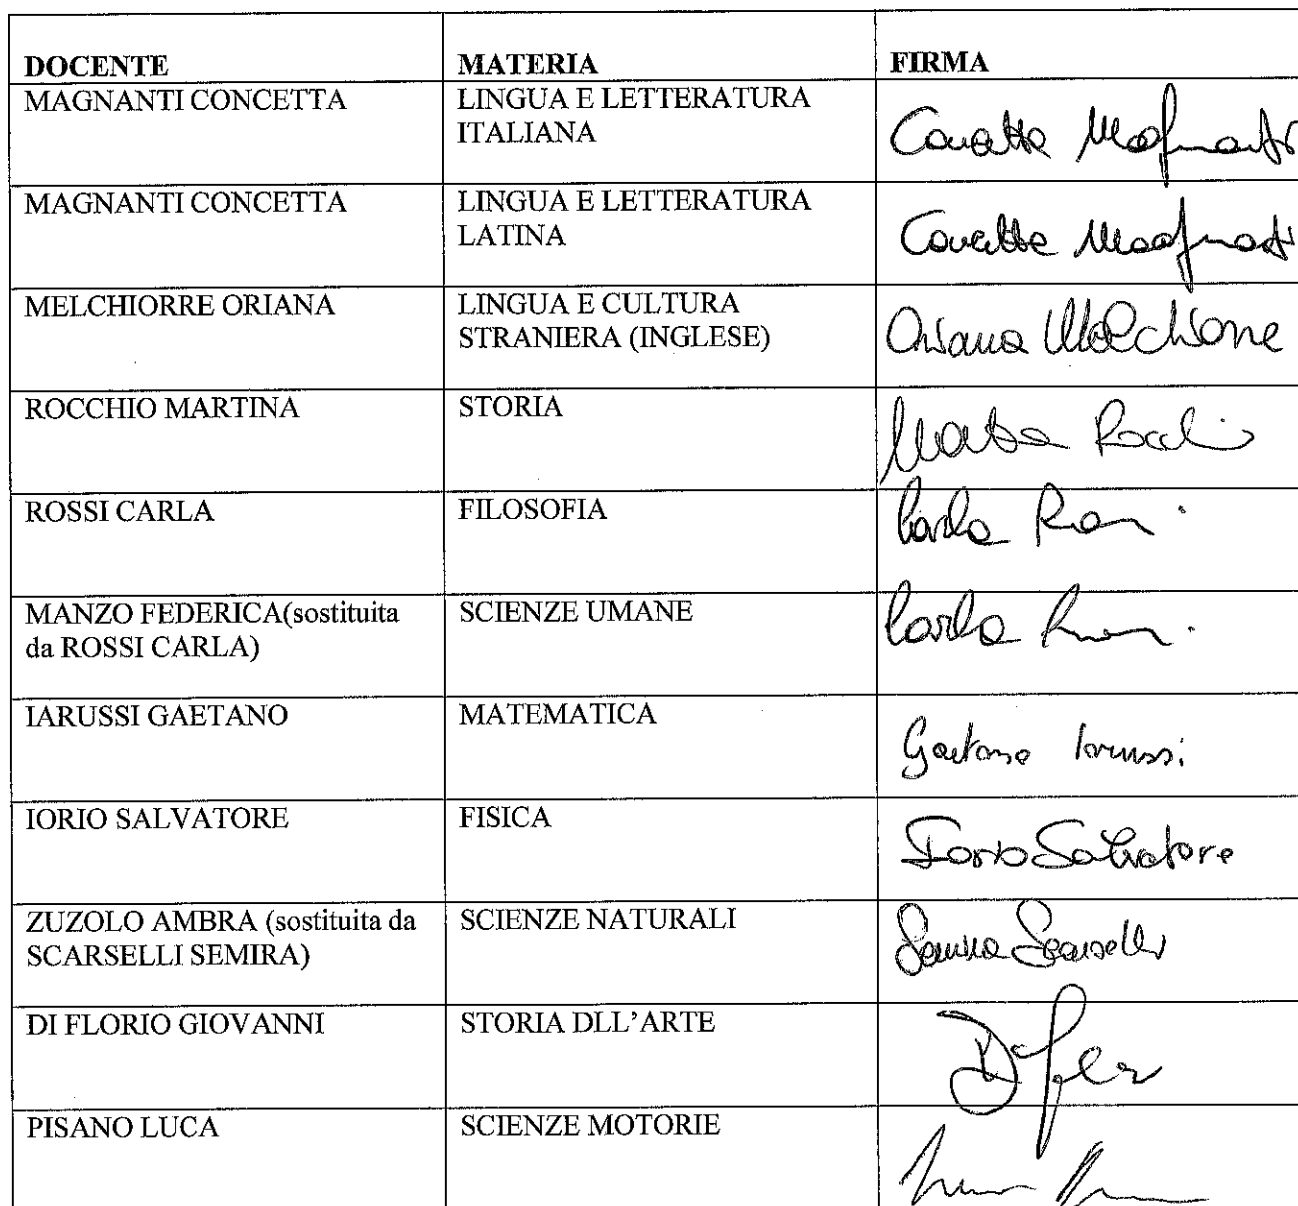 DOCENTE MATERIA FIRMA
MAGNANTI CONCETTA LINGUA E LETTERATURA
ITALIANA
Concetta Magnanti
MAGNANTI CONCETTA LINGUA E LETTERATURA
LATINA
Concetta Magnanti
MELCHIORRE ORIANA LINGUA E CULTURA
STRANIERA (INGLESE)
Oriana Melchiorre
ROCCHIO MARTINA STORIA
Rocchio
ROSSI CARLA FILOSOFIA
Carla Rossi
MANZO FEDERICA(sostituita SCIENZE UMANE
da ROSSI CARLA)
Carla Rossi
IARUSSI GAETANO MATEMATICA
Gaetano Iarussi
IORIO SALVATORE FISICA
Iorio Salvatore
ZUZOLO AMBRA (sostituita da SCIENZE NATURALI
SCARSELLI SEMIRA)
Semira Scarselli
DI FLORIO GIOVANNI STORIA DLL'ARTE
PISANO LUCA SCIENZE MOTORIE